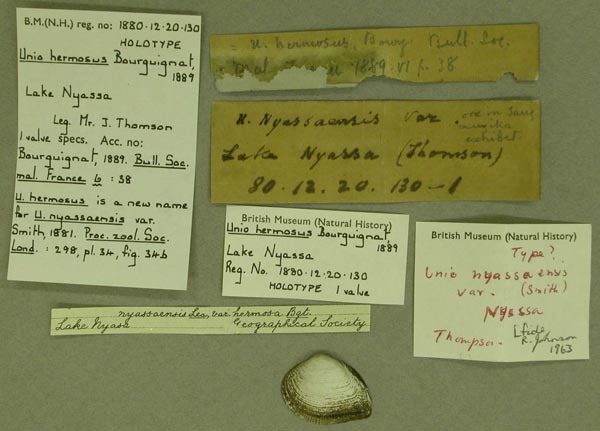 B.M.(N.H.) reg. no: 1880.12.20.130
HOLOTYPE
Unio hermosus Bourguignat,
1889
Lake Nyassa
Leg. Mr. J. Thomson
1 valve specs. Acc. no:
Bourguignat, 1889. Bull. Soc.
mal. France 6 : 38
U. hermosus is a new name
for U. nyassaensis var.
Smith, 1881. Proc. zool. Soc.
Lond. : 298, pl. 34, fig. 34b
= U. hermosus, Bourg. Bull. Soc.
1889. VI p. 38
U. Nyassaensis Var.
one in Tang
exhibit
Lake Nyassa (Thomson)
80.12.20.130-1
British Museum (Natural History)
Unio hermosus Bourguignat,
1889
Lake Nyassa
Reg. No. 1880.12.20.130
HOLOTYPE 1 valve
British Museum (Natural History)
Type?
Unio nyassaensis
var. (Smith)
Nyassa
Thompson. [fide
R. Johnson
1963
nyassaensis Lea, var. hermosa Bgt.
Lake Nyasa Geographical Society